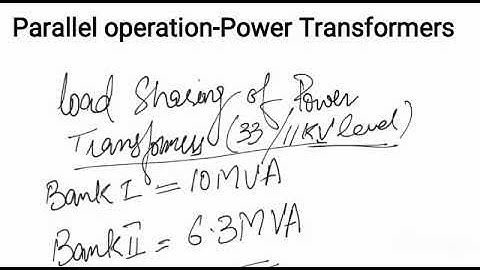 Parallel operation-Power Transformers
Load Sharing of Power
Transformers (33/11KV level)
Bank I = 10MVA
Bank II = 6.3MVA